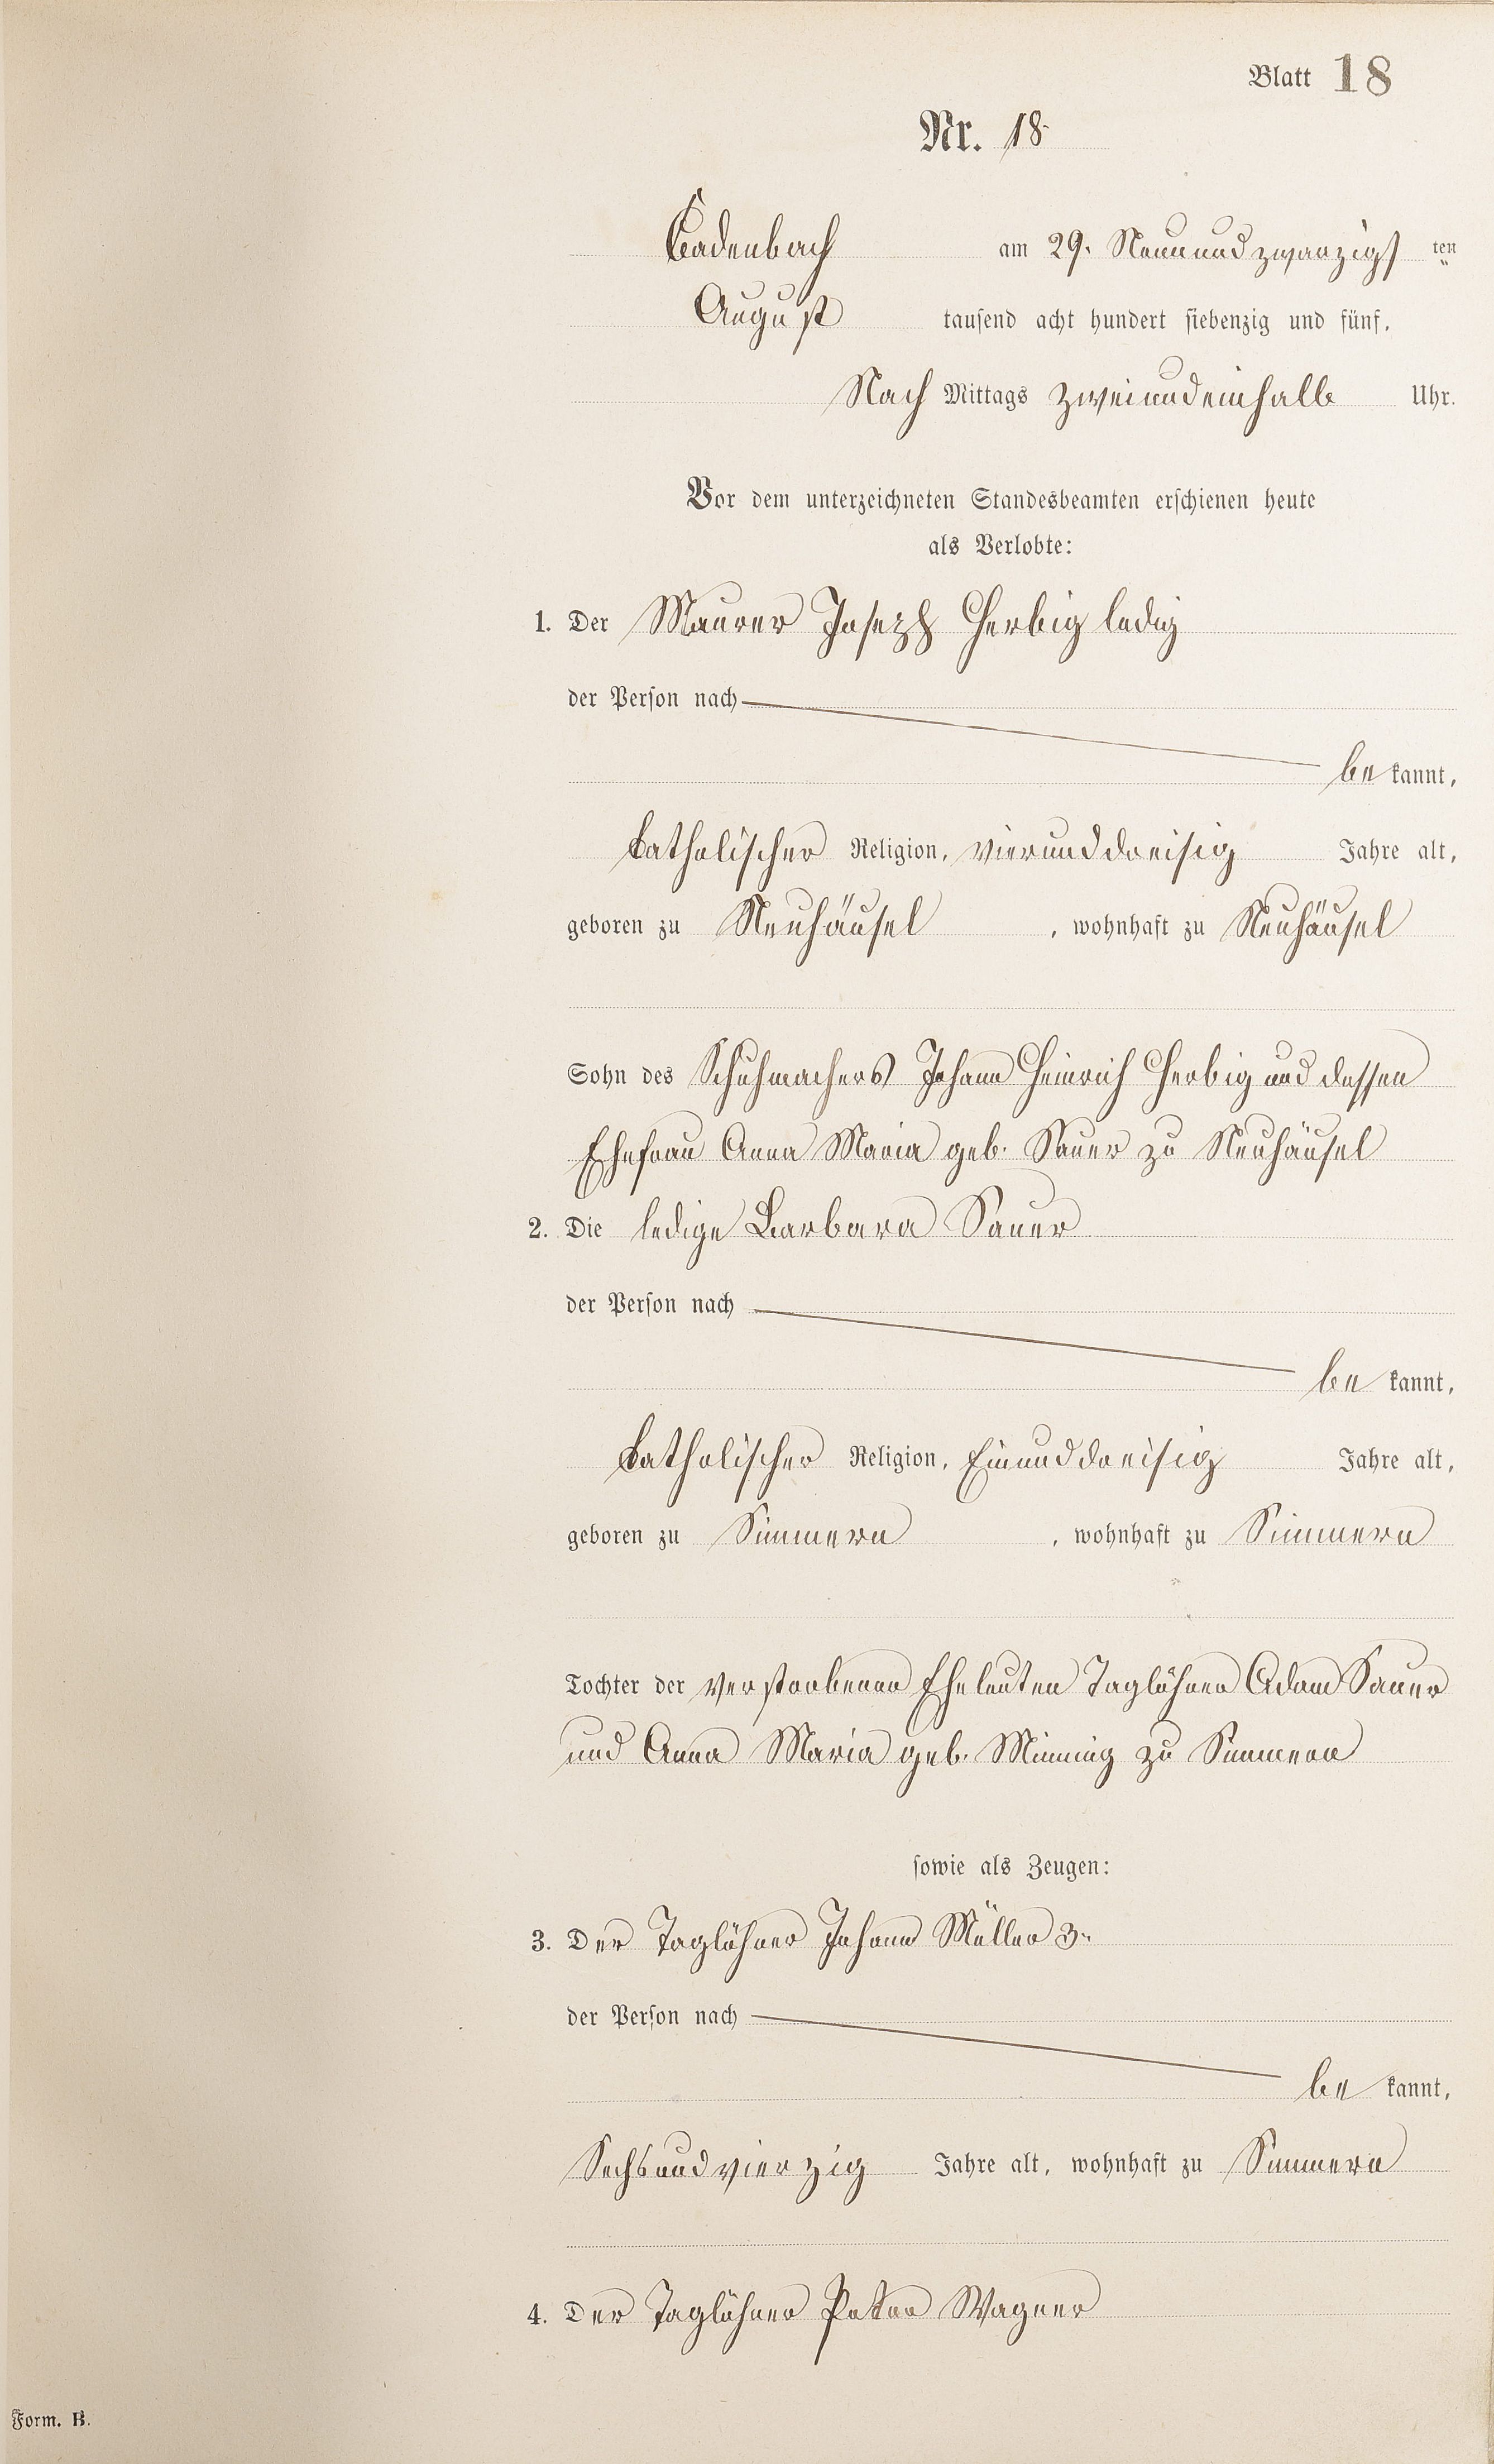 Blatt 18
Nr. 18
Cadenbach am 29. Neunundzwanzigs ten
August tausend acht hundert siebenzig und fünf,
Nach Mittags zweiundeinhalb Uhr.
Vor dem unterzeichneten Standesbeamten erschienen heute
als Verlobte:
1. Der Maurer Joseph Herbig ledig
der Person nach
be kannt,
katholischer Religion, vierunddreisig Jahre alt,
geboren zu Neuhäusel , wohnhaft zu Neuhäusel
Sohn des Schuhmachers Johann Heinrich Herbig und dessen
Ehefrau Anna Maria geb. Sauer zu Neuhäusel
2. Die ledige Barbara Sauer
der Person nach
be kannt,
katholischer Religion, Einunddreisig Jahre alt,
geboren zu Simmern , wohnhaft zu Simmern
Tochter der verstorbenen Eheleuten Taglöhner Adam Sauer
und Anna Maria geb. Minning zu Simmern
sowie als Zeugen:
3. Der Taglöhner Johann Müller 3r
der Person nach
be kannt,
Sechsundvierzig Jahre alt, wohnhaft zu Simmern
4. Der Taglöhner Peter Wagner
Form. B.